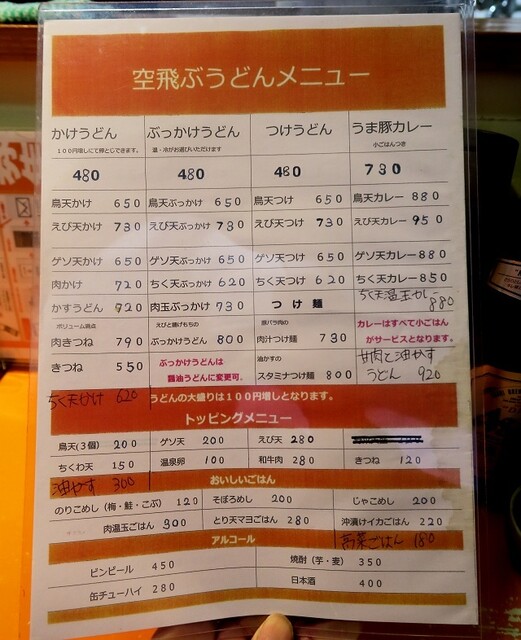 空飛ぶうどんメニュー
かけうどん ぶっかけうどん つけうどん うま豚カレー
100円増しにて卵とじできます。 温・冷がお選びいただけます 小ごはんつき
480 480 480 730
鳥天かけ 650 鳥天ぶっかけ 650 鳥天つけ 650 鳥天カレー 880
えび天かけ 730 えび天ぶっかけ 730 えび天つけ 730 えび天カレー 950
ゲソ天かけ 650 ゲソ天ぶっかけ 650 ゲソ天つけ 650 ゲソ天カレー 880
肉かけ 720 ちく天ぶっかけ 620 ちく天つけ 620 ちく天カレー 850
かすうどん 720 肉玉ぶっかけ 730 つけ麺 ちく天温玉カレー 880
ボリューム満点 えびと鶏げそもちの 豚バラ肉の カレーはすべて小ごはん
肉きつね 790 ぶっかけうどん 800 肉汁つけ麺 730 がサービスとなります。
きつね 550 ぶっかけうどんは 油かすの 甘肉と油かす
醤油うどんに変更可。 スタミナつけ麺 800 うどん 920
ちく天かけ 620 うどんの大盛りは100円増しとなります。
トッピングメニュー
鳥天(3個) 200 ゲソ天 200 えび天 280
ちくわ天 150 温泉卵 100 和牛肉 280 きつね 120
油かす 300 おいしいごはん
のりこめし(梅・鮭・こぶ) 120 そぼろめし 200 じゃこめし 200
肉温玉ごはん 300 とり天マヨごはん 280 沖漬けイカごはん 220
アルコール 高菜ごはん 180
ビンビール 450 焼酎(芋・麦) 350
缶チューハイ 280 日本酒 400